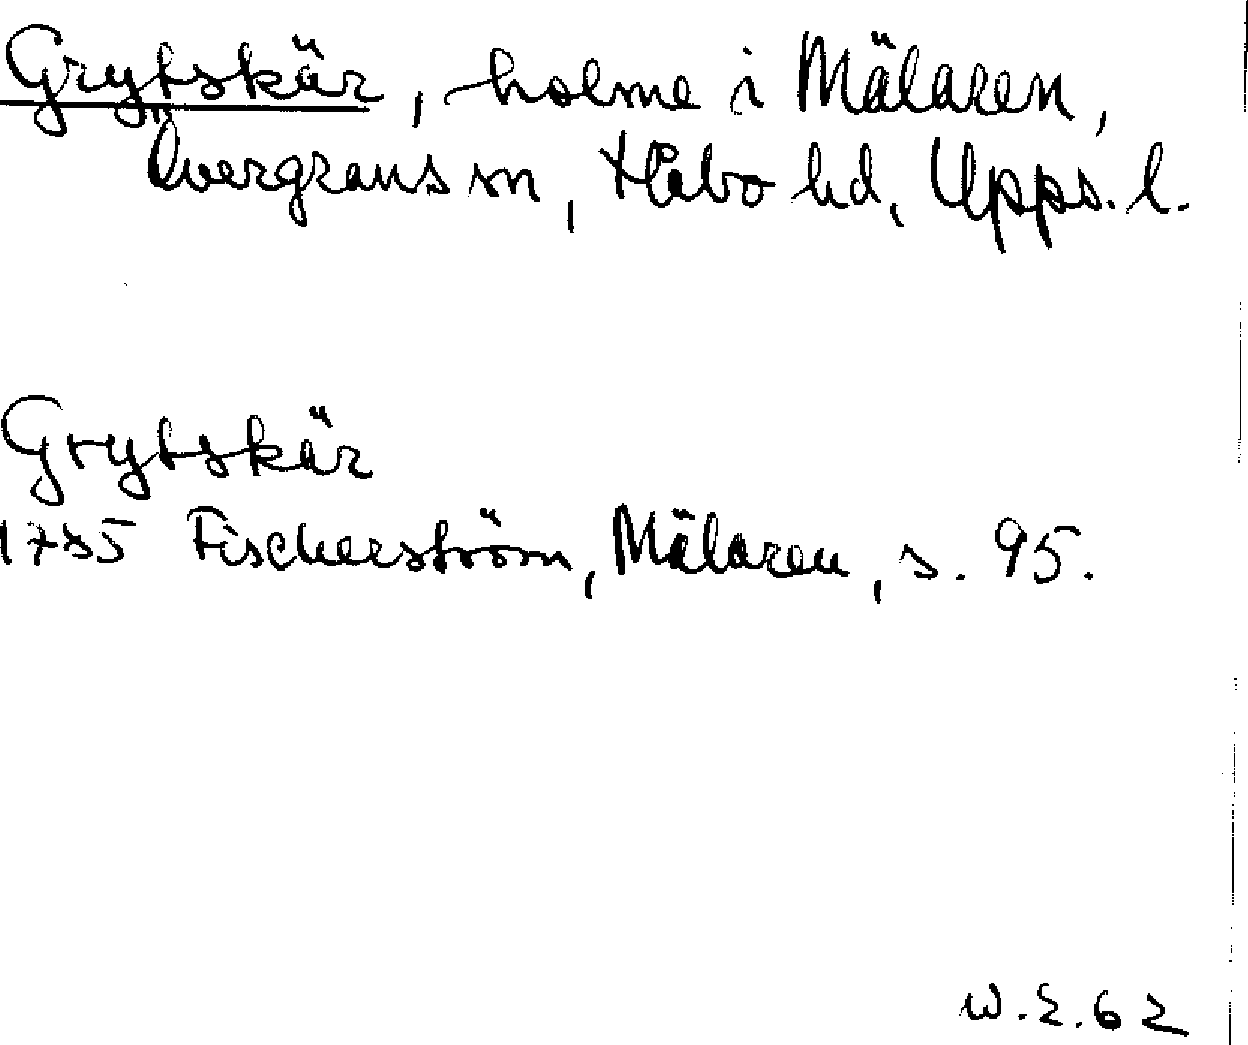 Grytskär, holme i Mälaren,
Övergrans sn, Håbo hd, Upps. l.
Grytskär
1785 Fischerström, Mälaren, s. 95.
W.E.62